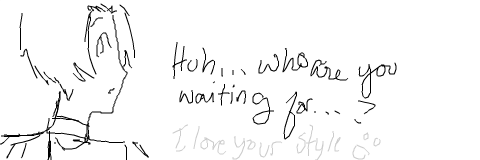 Huh... who are you
waiting for...?
I love your style